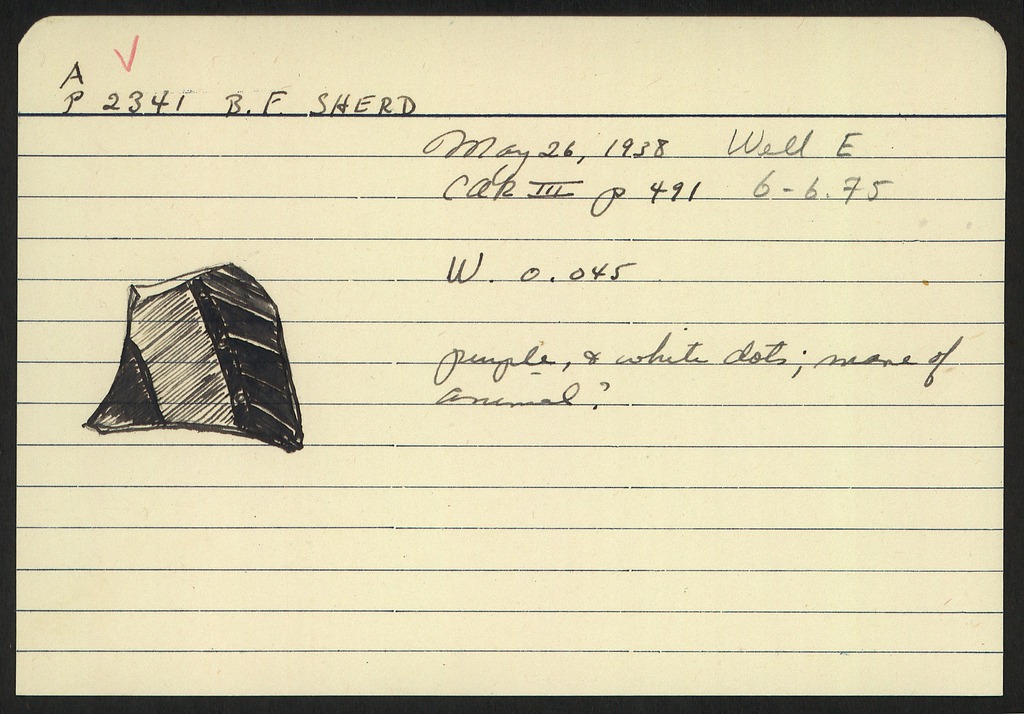 A
P 2341 B.F. SHERD
May 26, 1938 Well E
CQR III p 491 6-6.75
W. 0.045
purple, & white dots; mane of
animal?